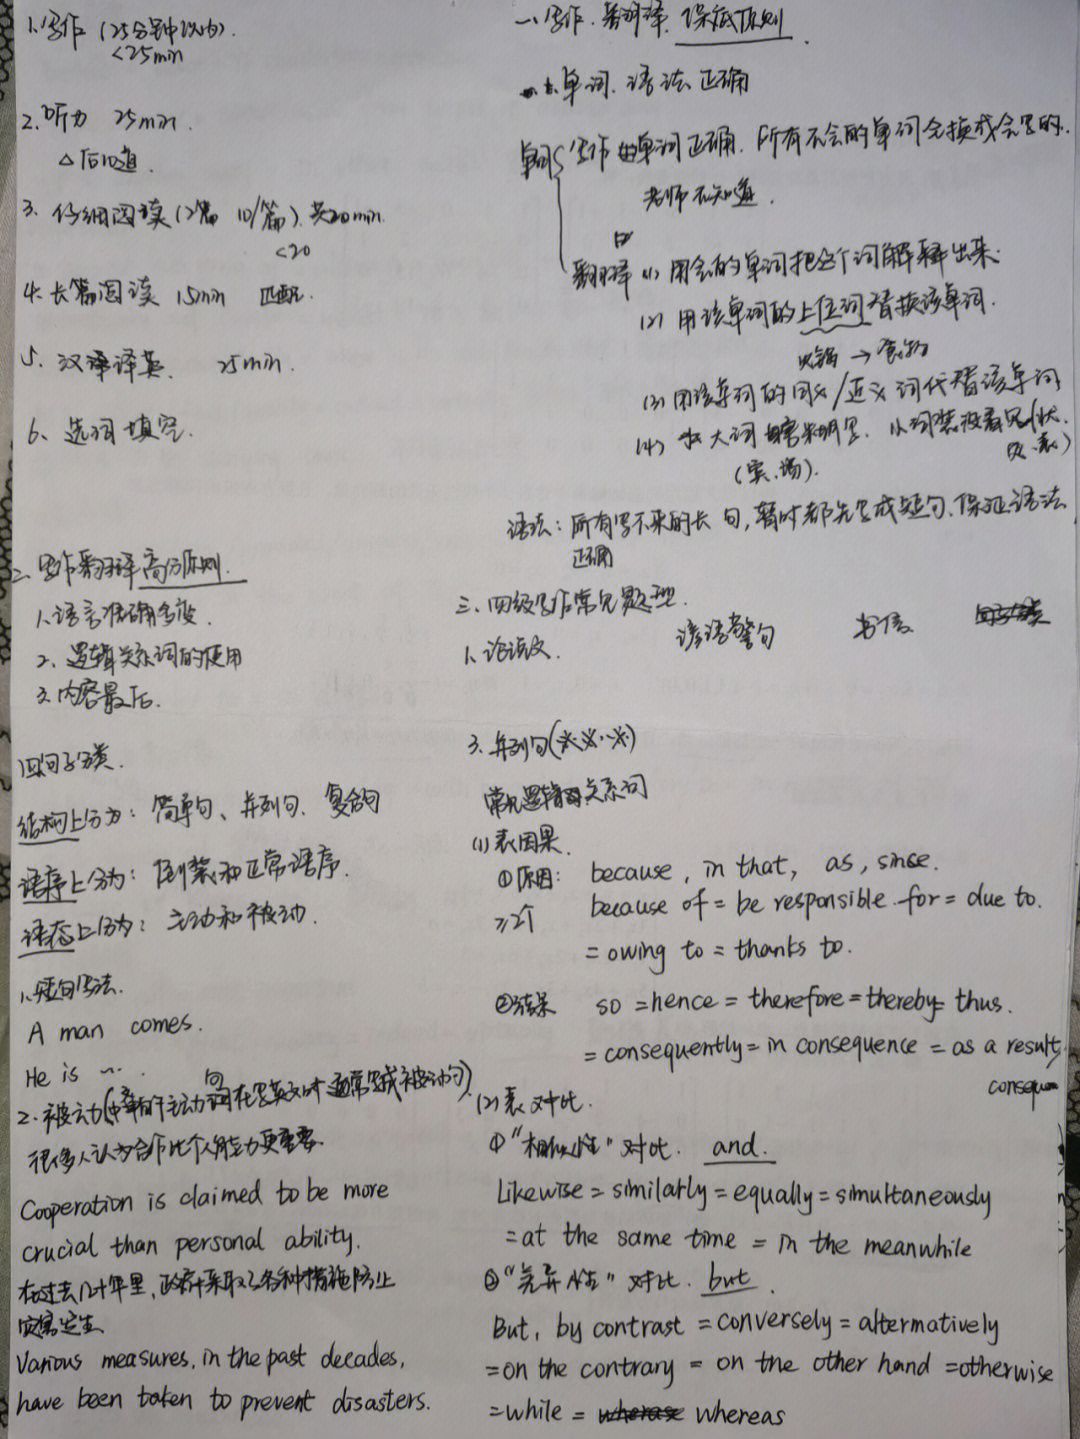 1.写作 (25分钟以内).
<25min
2.听力 25min.
△后10道.
3. 仔细阅读 (2篇 10/篇). 共20min.
<20
4. 长篇阅读 15min 匹配.
5. 汉译英. 25min.
6. 选词填空.
一、写作.翻译.保底原则.
单词.语法正确
单词 写作 单词正确.所有不会的单词全换成会写的.
老师不知道.
翻译 (1) 用会的单词把这个词解释出来.
(2) 用该单词的上位词替换该单词.
火锅 → 食物
(3) 用该单词的同义/近义词代替该单词
(4) 大词 小词装没看见(状.
(宾.主).
语法: 所有写不来的长句,暂时都先写成短句.保证语法
正确
二、写作翻译高分原则.
1.语言准确多变.
2. 逻辑关系词的使用
3.内容最后.
三、四级写作常见题型.
1.论说文. 谚语警句 书信
四.句子分类.
结构上分为: 简单句、并列句、复合句
语序上分为: 倒装和正常语序.
语态上分为: 主动和被动.
1.短句写法.
A man comes.
He is ….
2.被动(中文主动句在写英文时通常写成被动句)
很多人认为合作比个人能力更重要.
Cooperation is claimed to be more
crucial than personal ability.
在过去几十年里,政府采取了各种措施防止
灾害发生
Various measures, in the past decades,
have been taken to prevent disasters.
3. 并列句(※※··※)
常见逻辑关系词
(1)表因果.
①原因: because, in that, as, sinse.
≥2个 because of = be responsible for = due to.
= owing to = thanks to.
②结果 so = hence = therefore = thereby = thus.
= consequently = in consequence = as a result
(2)表对比.
①“相似性”对比. and.
Likewise = similarly = equally = simultaneously
= at the same time = in the meanwhile
②“差异性”对比. but.
But, by contrast = conversely = alternatively
= on the contrary = on the other hand = otherwise
= while = whereas